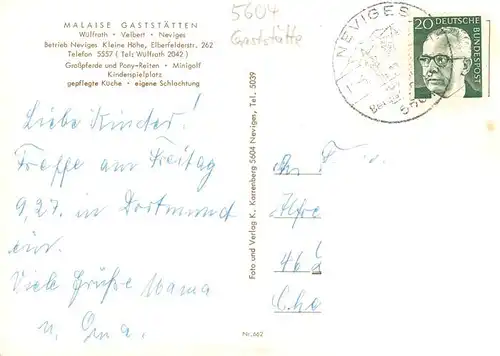 MALAISE GASTSTÄTTEN
Wülfrath · Velbert · Neviges
Betrieb Neviges Kleine Höhe, Elberfelderstr. 262
Telefon 5557 ( Tel: Wülfrath 2042 )
Großpferde und Pony-Reiten · Minigolf
Kinderspielplatz
gepflegte Küche · eigene Schlachtung
5604
Gaststätte
NEVIGES
20 DEUTSCHE
BUNDESPOST
Liebe Kinder!
Treffe am Freitag
9,27. in Dortmund
ein.
Viele Grüße Mama
u. Oma.
Foto und Verlag K. Karrenberg 5604 Neviges, Tel. 5039
Nr. 662